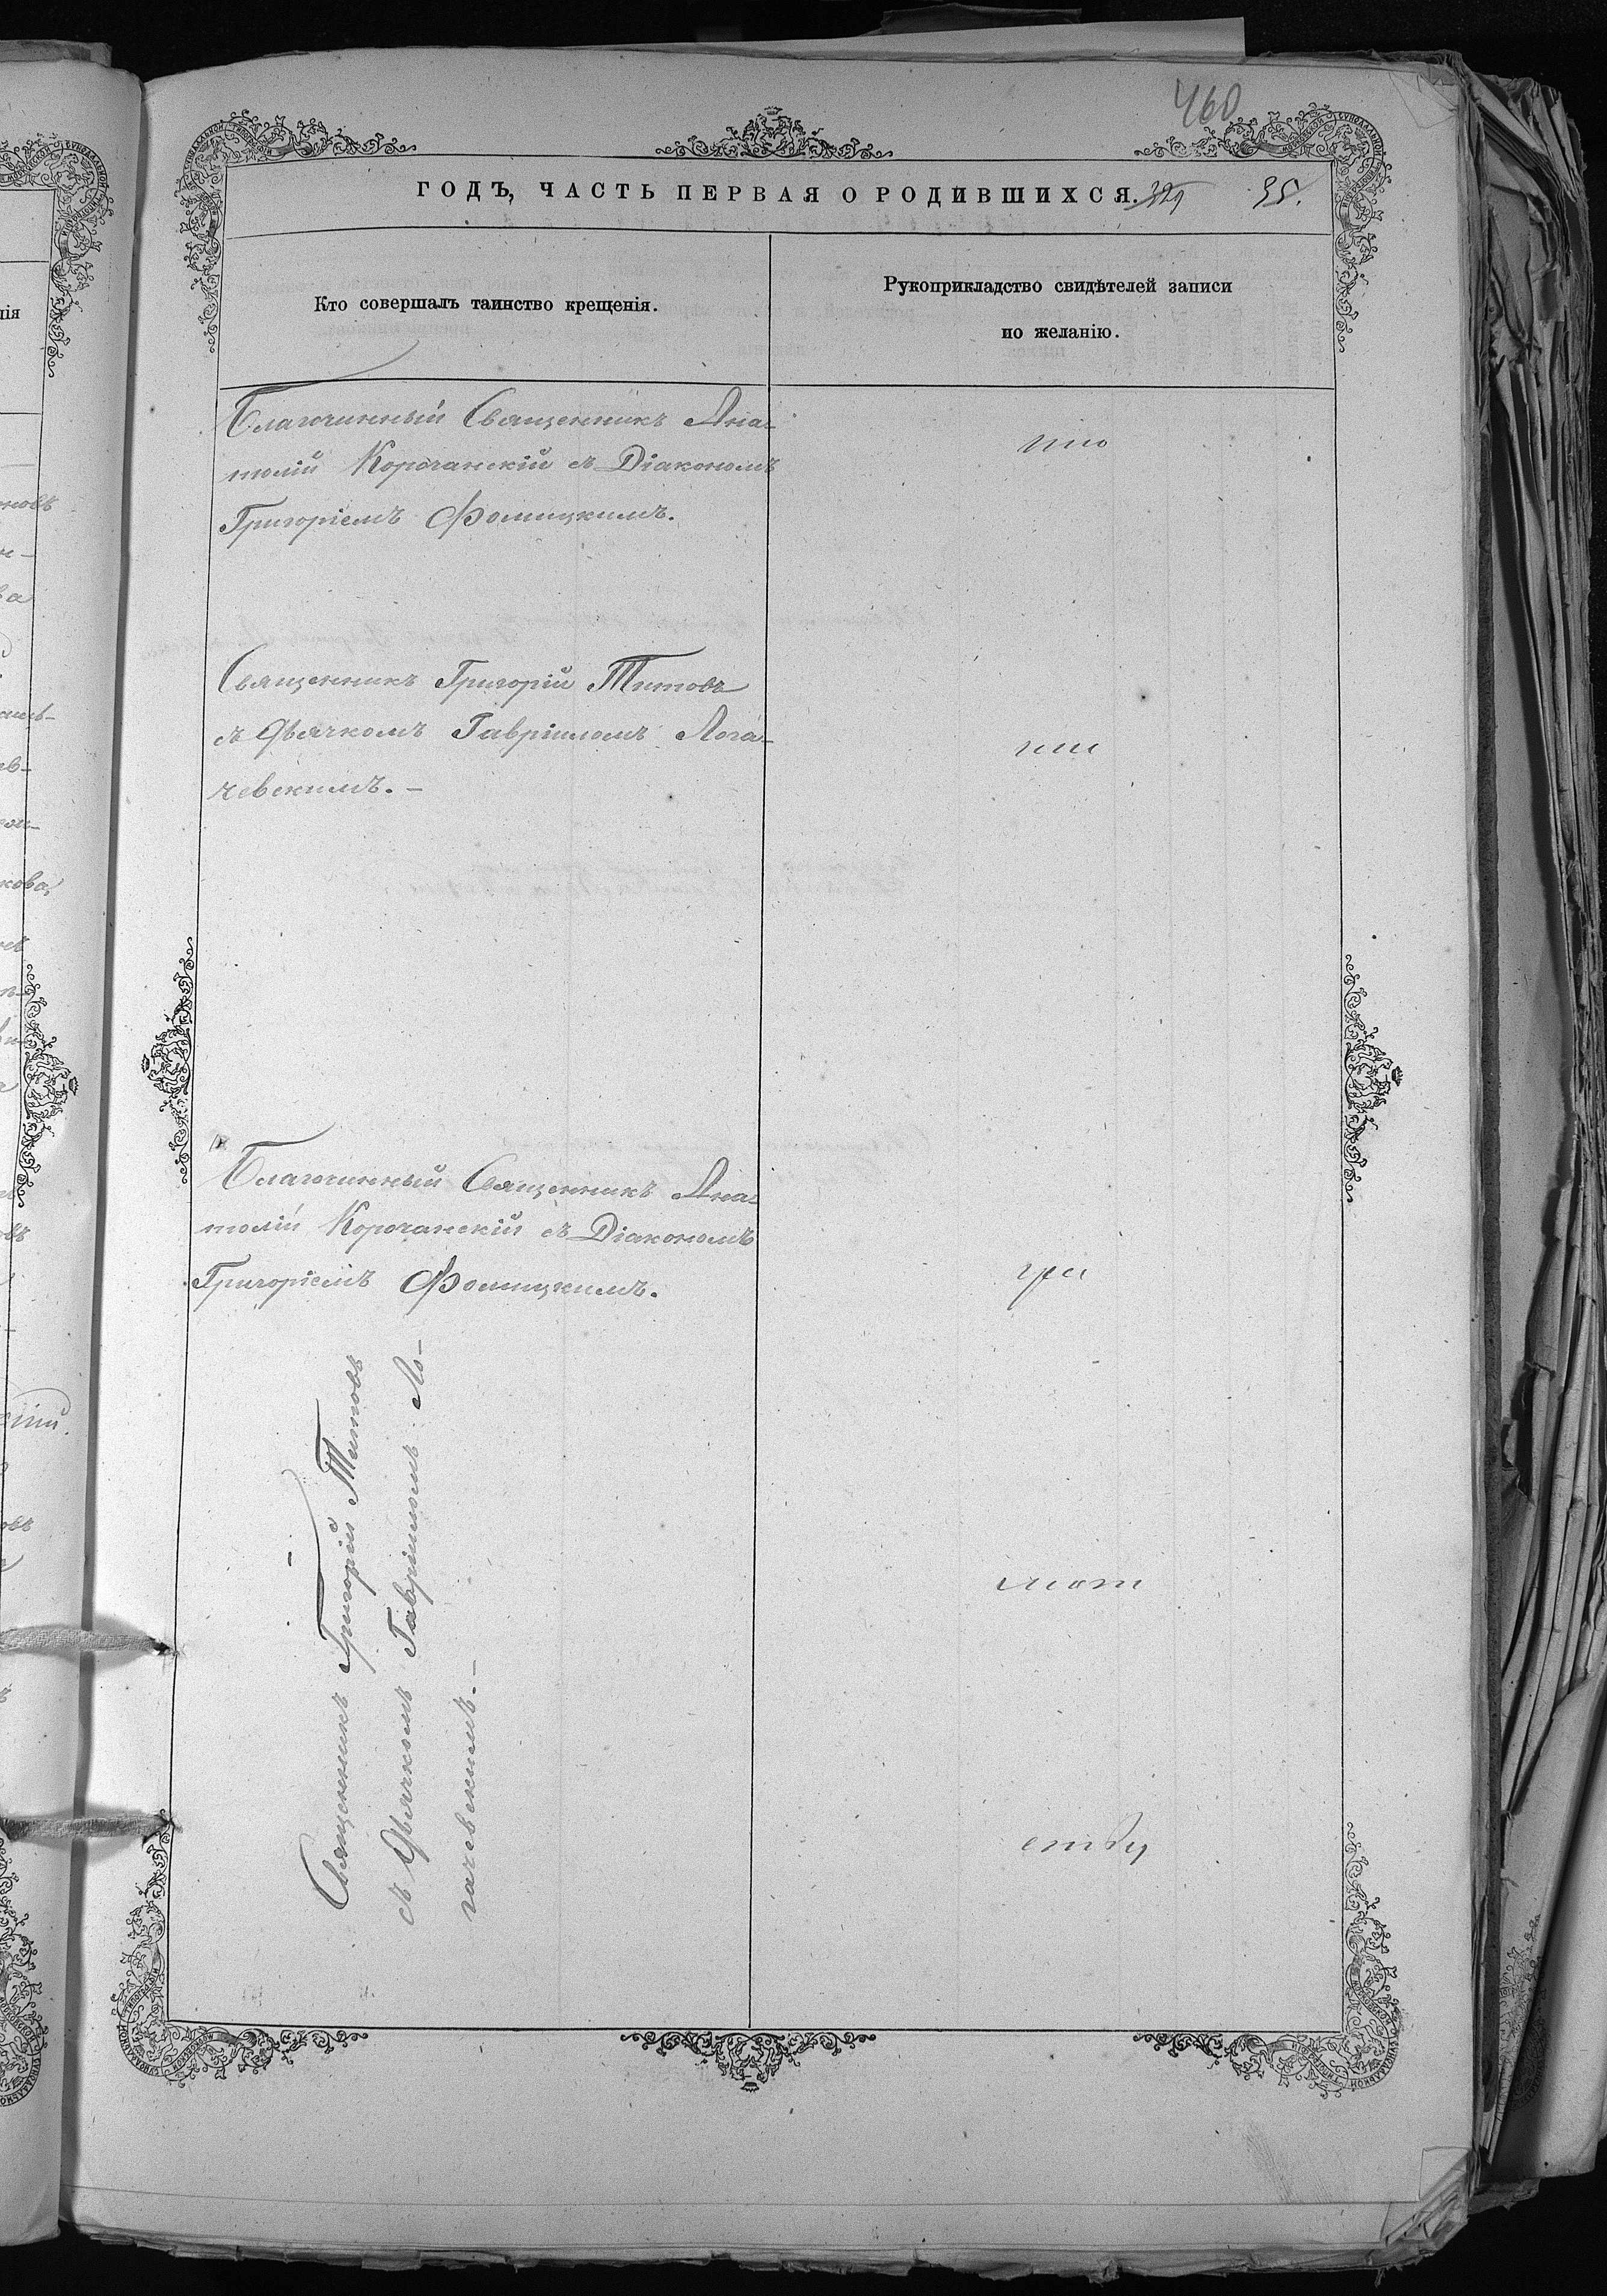 460
ГОДЪ, ЧАСТЬ ПЕРВАЯ О РОДИВШИХСЯ. 35.
Кто совершалъ таинство крещенія.
Рукоприкладство свидѣтелей записи
по желанію.
Благочинный Священникъ Ана-
толій Корочанскій съ Діакономъ
Григоріемъ Фомицкимъ.
Священникъ Григорій Титовъ
съ Дьячкомъ Гавріиломъ Лога-
чевскимъ. —
Благочинный Священникъ Ана-
толій Корочанскій съ Діакономъ
Григоріемъ Фомицкимъ.
Священникъ Григорій Титовъ
съ Дьячкомъ Гавріиломъ Ло-
гачевскимъ. —